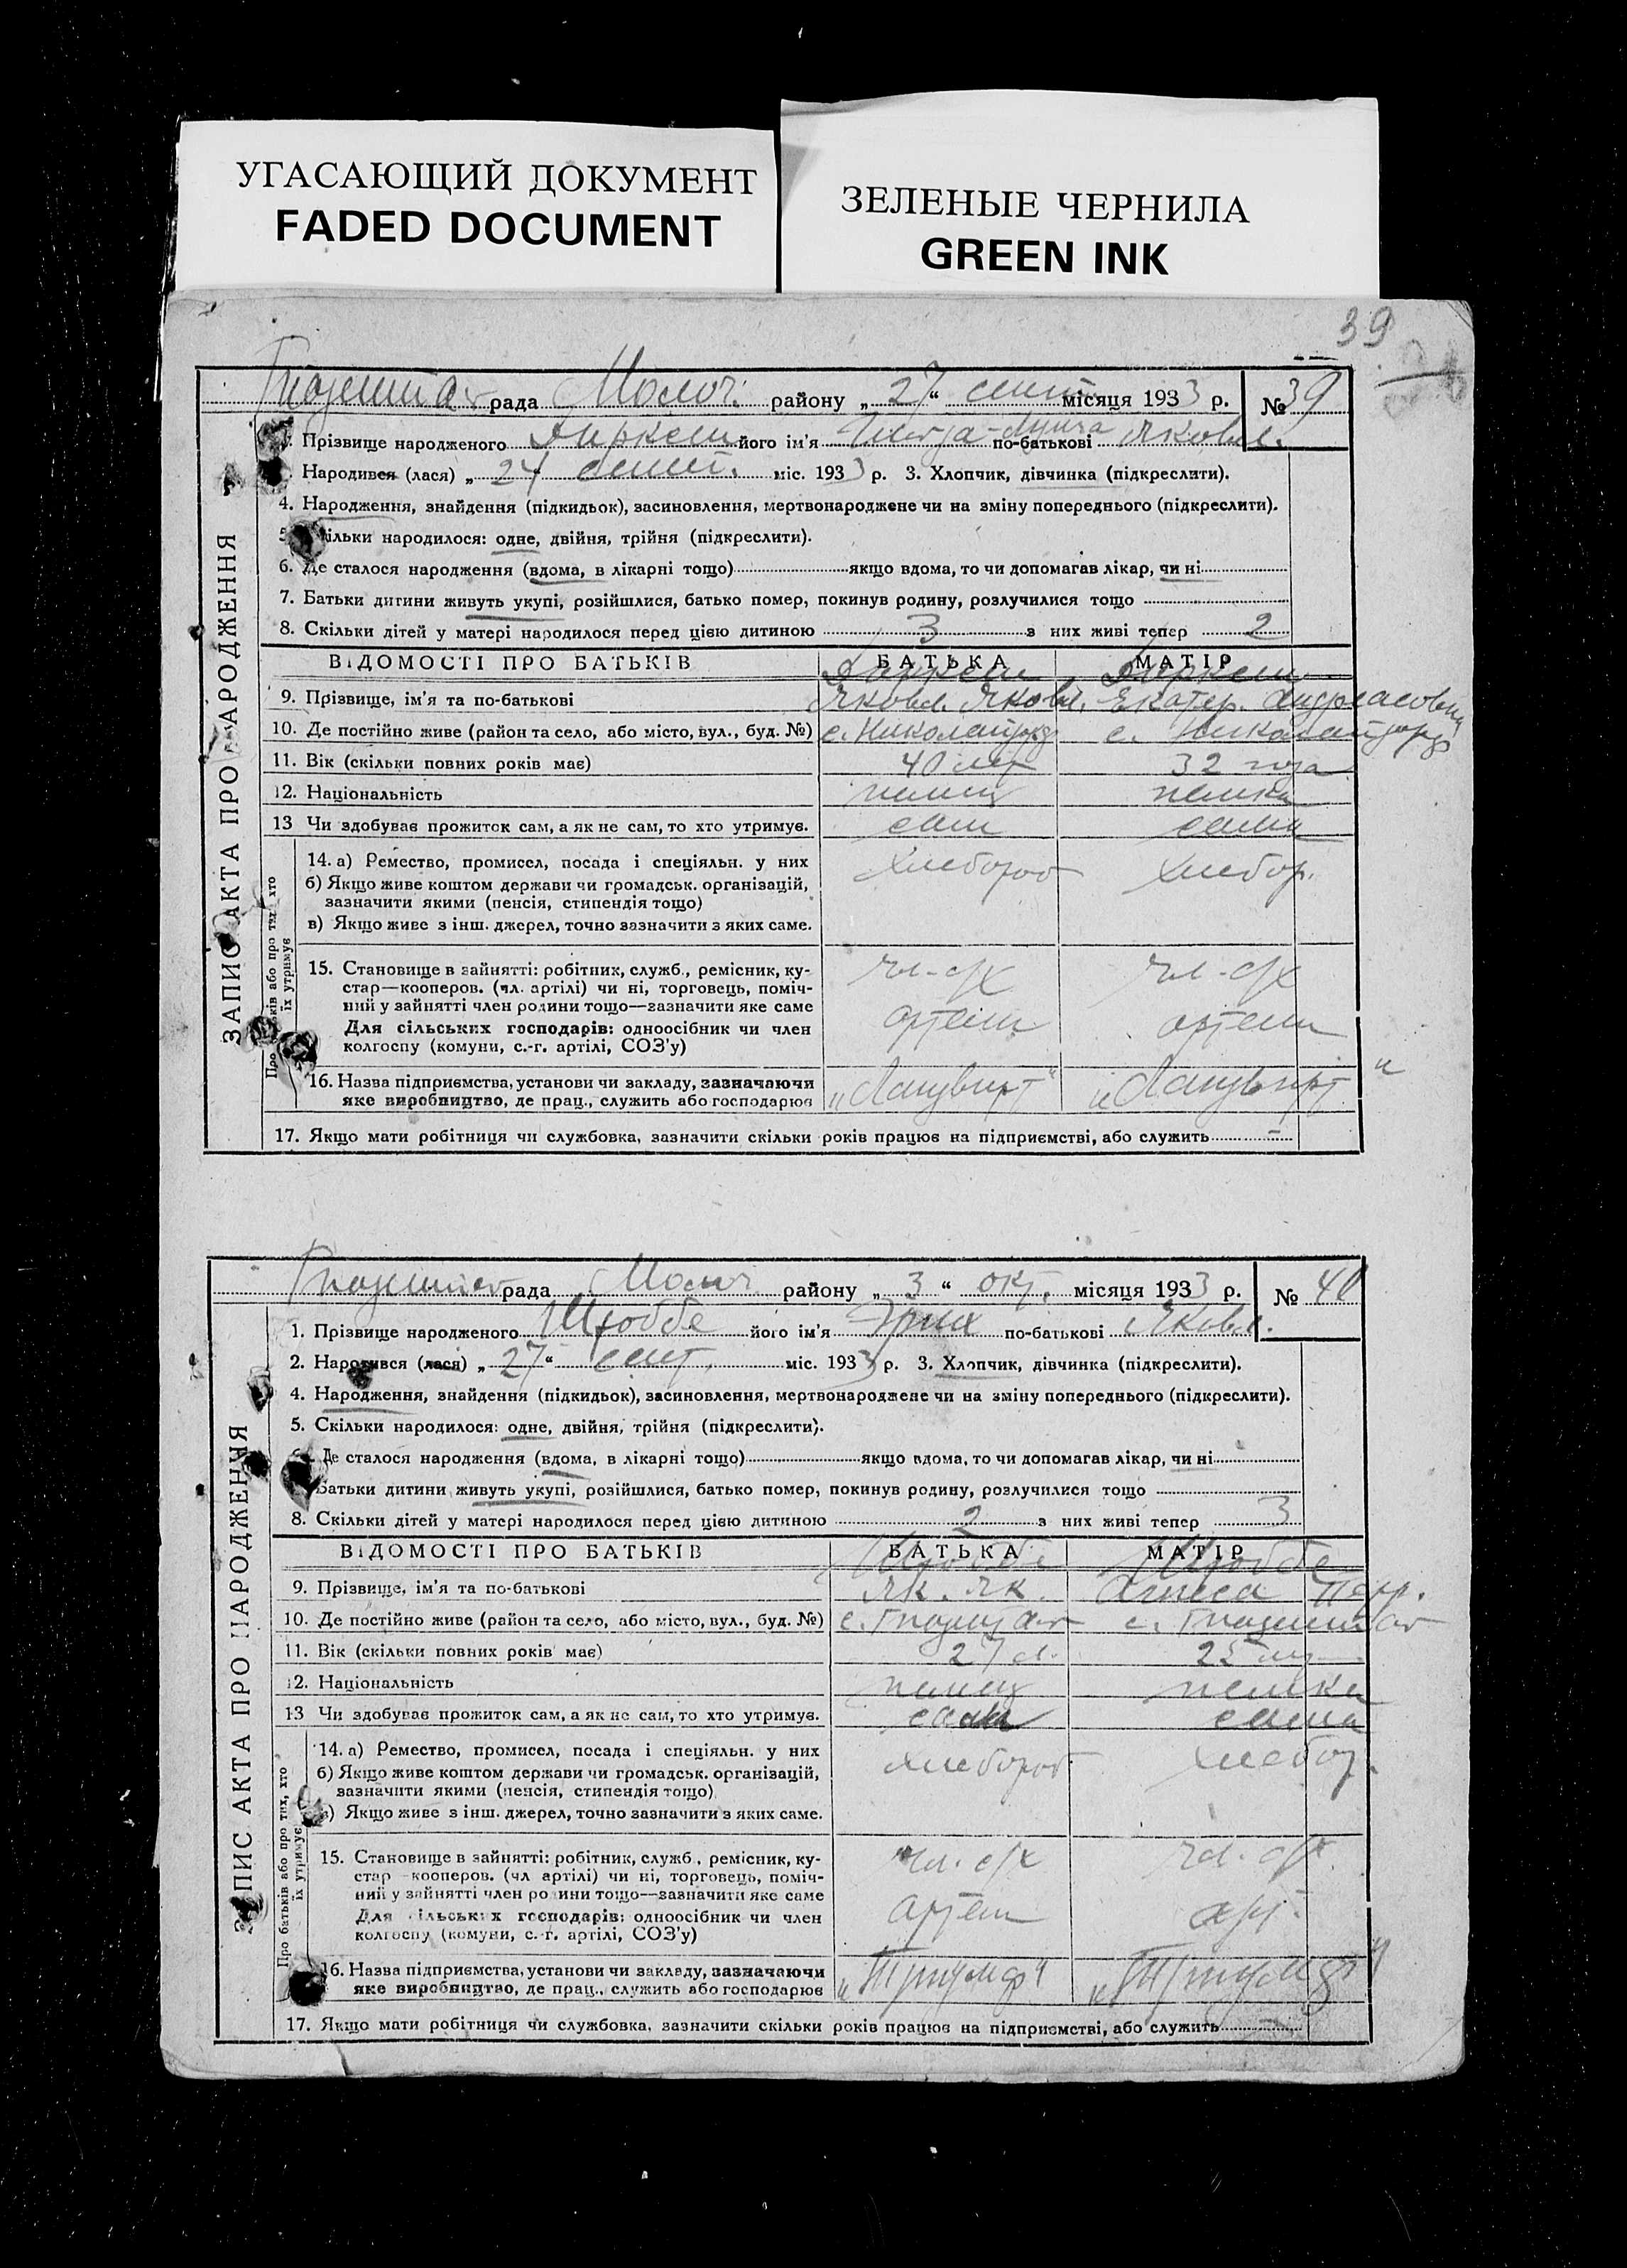 УГАСАЮЩИЙ ДОКУМЕНТ
FADED DOCUMENT
ЗЕЛЕНЫЕ ЧЕРНИЛА
GREEN INK
39
рада Молоч. району „27“ сент. місяця 1933 р. № 39
Прізвище народженого Дирксен його ім'я по-батькові Яковл.
Народився (лася) „24 сент. міс. 1933 р. 3. Хлопчик, дівчинка (підкреслити).
4. Народження, знайдення (підкидьок), засиновлення, мертвонароджене чи на зміну попереднього (підкреслити).
ільки народилося: одне, двійня, трійня (підкреслити).
6. Де сталося народження (вдома, в лікарні тощо) якщо вдома, то чи допомагав лікар, чи ні
7. Батьки дитини живуть укупі, розійшлися, батько помер, покинув родину, розлучилися тощо
8. Скільки дітей у матері народилося перед цією дитиною 3 з них живі тепер 2
ВІДОМОСТІ ПРО БАТЬКІВ БАТЬКА МАТІР
Дирксен Дирксен
9. Прізвище, ім'я та по-батькові Яковл. Яковл. Екатер. Андреасовна
10. Де постійно живе (район та село, або місто, вул., буд. №) с. Николайдорф с. Николайдорф
11. Вік (скільки повних років має) 40 лет 32 года
12. Національність немец немка
13 Чи здобував прожиток сам, а як не сам, то хто утримує. сам сама
14. а) Ремество, промисел, посада і спеціяльн. у них хлебороб хлебор.
б) Якщо живе коштом держави чи громадськ. організацій,
зазначити якими (пенсія, стипендія тощо)
в) Якщо живе з інш. джерел, точно зазначити з яких саме.
15. Становище в зайнятті: робітник, служб., ремісник, ку- чл. с/х чл. с/х
стар—кооперов. (чл. артілі) чи ні, торговець, поміч-
ний у зайнятті член родини тощо—зазначити яке саме
Для сільських господарів: одноосібник чи член артели артели
колгоспу (комуни, с.-г. артілі, СОЗ'у)
16. Назва підприємства, установи чи закладу, зазначаючи „Ландвирт“ „Ландвирт“
яке виробництво, де прац., служить або господарює
17. Якщо мати робітниця чи службовка, зазначити скільки років працює на підприємстві, або служить -
ЗАПИС АКТА ПРО НАРОДЖЕННЯ
рада Молоч. району „3“ окт. місяця 1933 р. № 40
1. Прізвище народженого Штоббе його ім'я Эрих по-батькові Яковл.
2. Народився (лася) „27“ сент. міс. 1933 р. 3. Хлопчик, дівчинка (підкреслити).
4. Народження, знайдення (підкидьок), засиновлення, мертвонароджене чи на зміну попереднього (підкреслити).
5. Скільки народилося: одне, двійня, трійня (підкреслити).
Де сталося народження (вдома, в лікарні тощо) якщо вдома, то чи допомагав лікар, чи ні
Батьки дитини живуть укупі, розійшлися, батько помер, покинув родину, розлучилися тощо
8. Скільки дітей у матері народилося перед цією дитиною 2 з них живі тепер 3
ВІДОМОСТІ ПРО БАТЬКІВ БАТЬКА МАТІР
Штоббе Штоббе
9. Прізвище, ім'я та по-батькові Як. Як. Агнеса Петр.
10. Де постійно живе (район та село, або місто, вул., буд. №) с. с.
11. Вік (скільки повних років має) 27 л. 25 лет
12. Національність немец немка
13 Чи здобував прожиток сам, а як не сам, то хто утримує. сам сама
14. а) Ремество, промисел, посада і спеціяльн. у них хлебороб хлебор.
б) Якщо живе коштом держави чи громадськ. організацій,
зазначити якими (пенсія, стипендія тощо)
в) Якщо живе з інш. джерел, точно зазначити з яких саме.
15. Становище в зайнятті: робітник, служб., ремісник, ку- чл. с/х чл. с/х
стар—кооперов. (чл артілі) чи ні, торговець, поміч-
ний у зайнятті член родини тощо—зазначити яке саме
Для сільських господарів: одноосібник чи член артели арт.
колгоспу (комуни, с.-г. артілі, СОЗ'у)
16. Назва підприємства, установи чи закладу, зазначаючи „Триумф“ „Триумф“
яке виробництво, де прац., служить або господарює
17. Якщо мати робітниця чи службовка, зазначити скільки років працює на підприємстві, або служить
ЗАПИС АКТА ПРО НАРОДЖЕННЯ
Про батьків або про тих, хто
їх утримує